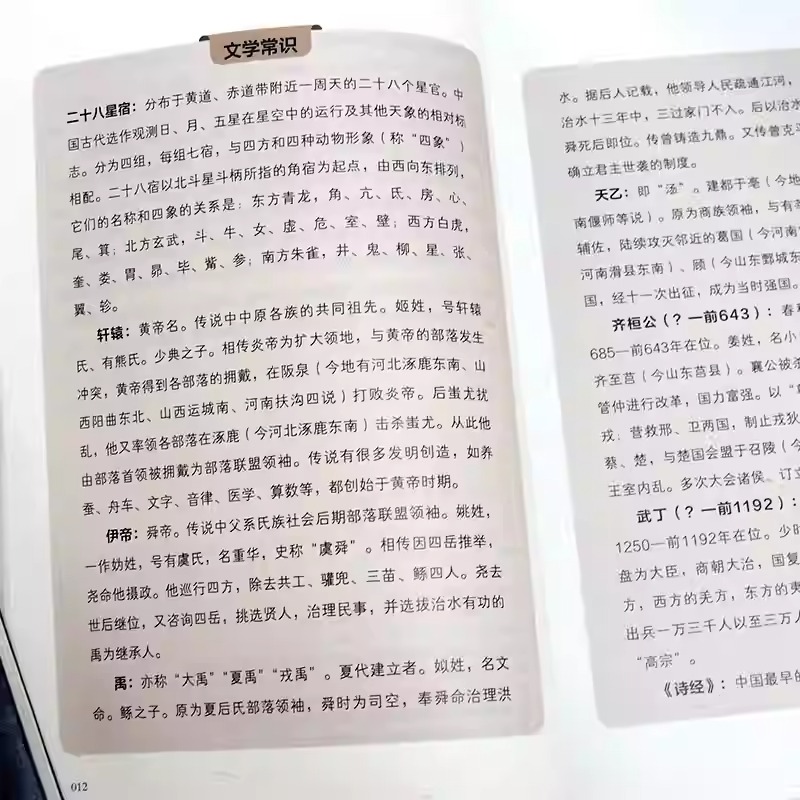 文学常识
二十八星宿：分布于黄道、赤道带附近一周天的二十八个星官。中
国古代选作观测日、月、五星在星空中的运行及其他天象的相对标
志。分为四组，每组七宿，与四方和四种动物形象（称“四象”）
相配。二十八宿以北斗星斗柄所指的角宿为起点，由西向东排列，
它们的名称和四象的关系是：东方青龙，角、亢、氐、房、心、
尾、箕；北方玄武，斗、牛、女、虚、危、室、壁；西方白虎，
奎、娄、胃、昴、毕、觜、参；南方朱雀，井、鬼、柳、星、张、
翼、轸。
轩辕：黄帝名。传说中中原各族的共同祖先。姬姓，号轩辕
氏、有熊氏。少典之子。相传炎帝为扩大领地，与黄帝的部落发生
冲突，黄帝得到各部落的拥戴，在阪泉（今地有河北涿鹿东南、山
西阳曲东北、山西运城南、河南扶沟四说）打败炎帝。后蚩尤扰
乱，他又率领各部落在涿鹿（今河北涿鹿东南）击杀蚩尤。从此他
由部落首领被拥戴为部落联盟领袖。传说有很多发明创造，如养
蚕、舟车、文字、音律、医学、算数等，都创始于黄帝时期。
伊帝：舜帝。传说中父系氏族社会后期部落联盟领袖。姚姓，
一作妫姓，号有虞氏，名重华，史称“虞舜”。相传因四岳推举，
尧命他摄政。他巡行四方，除去共工、驩兜、三苗、鲧四人。尧去
世后继位，又咨询四岳，挑选贤人，治理民事，并选拔治水有功的
禹为继承人。
禹：亦称“大禹”“夏禹”“戎禹”。夏代建立者。姒姓，名文
命。鲧之子。原为夏后氏部落领袖，舜时为司空，奉舜命治理洪
012
水。据后人记载，他领导人民疏通江河，
治水十三年中，三过家门不入。后以治水
舜死后即位。传曾铸造九鼎。又传曾克三
确立君主世袭的制度。
天乙：即“汤”。建都于亳（今地
南偃师等说）。原为商族领袖，与有莘
辅佐，陆续攻灭邻近的葛国（今河南
河南滑县东南）、顾（今山东鄄城东
国，经十一次出征，成为当时强国。
齐桓公（？—前643）：春
685—前643年在位。姜姓，名小
齐至莒（今山东莒县）。襄公被杀
管仲进行改革，国力富强。以“
戎；营救邢、卫两国，制止戎狄
蔡、楚，与楚国会盟于召陵（今
王室内乱。多次大会诸侯、订立
武丁（？—前1192）：
1250—前1192年在位。少时
盘为大臣，商朝大治，国复
方，西方的羌方，东方的夷
出兵一万三千人以至三万人
“高宗”。
《诗经》：中国最早的